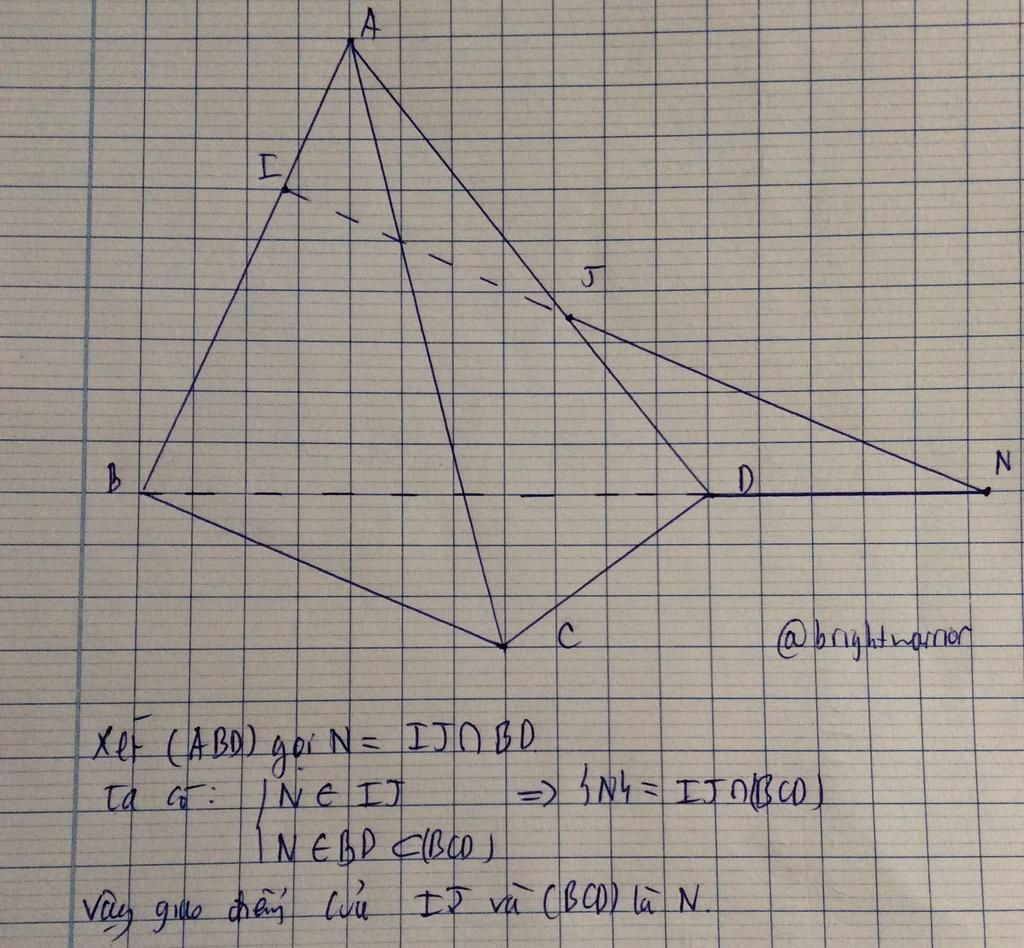 A
I
J
B
D
N
C
@brightwarrior
Xét (ABD) gọi N = IJ∩BD
Ta có: { N ∈ IJ => {N} = IJ∩(BCD)
N ∈ BD ⊂ (BCD)
Vậy giao điểm của IJ và (BCD) là N.